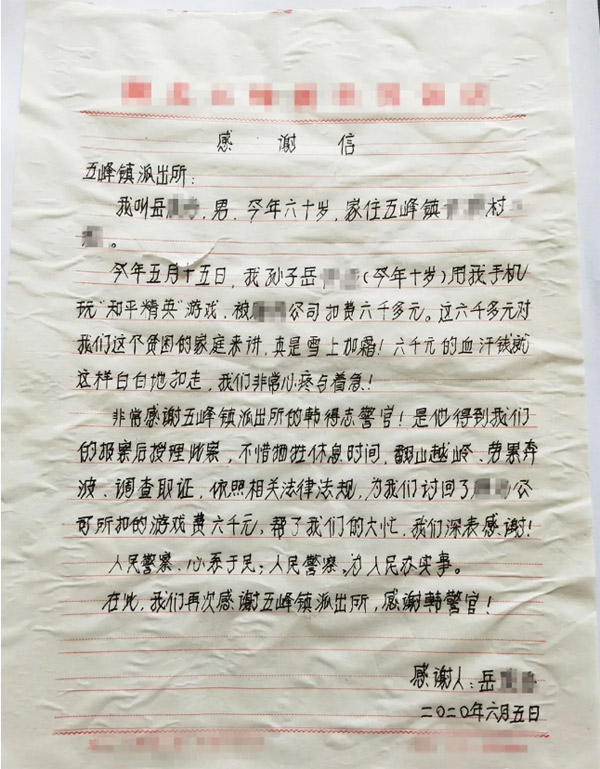 感谢信
五峰镇派出所:
我叫岳,男,今年六十岁,家住五峰镇村
。
今年五月十五日,我孙子岳(今年十岁)用我手机
玩“和平精英”游戏,被公司扣费六千多元。这六千多元对
我们这个贫困的家庭来讲,真是雪上加霜!六千元的血汗钱就
这样白白地扣走,我们非常心疼与着急!
非常感谢五峰镇派出所的韩得志警官!是他得到我们
的报案后授理此案,不惜牺牲休息时间,翻山越岭、劳累奔
波、调查取证,依照相关法律法规,为我们讨回了公
司所扣的游戏费六千元,帮了我们的大忙,我们深表感谢!
人民警察、心系于民;人民警察,为人民办实事。
在此,我们再次感谢五峰镇派出所,感谢韩警官!
感谢人:岳
二〇二〇年六月五日